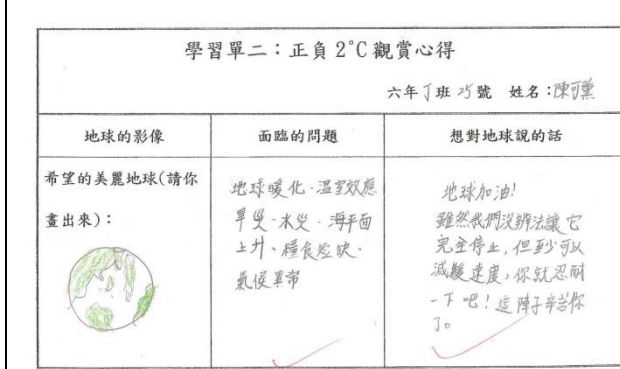 學習單二：正負 2°C 觀賞心得
六年丁班 25 號 姓名：陳可薰
地球的影像
面臨的問題
想對地球說的話
希望的美麗地球(請你
畫出來)：
地球暖化、溫室效應
旱災、水災、海平面
上升、糧食短缺、
氣侯異常
地球加油!
雖然我們沒辦法讓它
完全停止，但至少可以
減緩速度，你就忍耐
一下吧！這陣子辛苦你
了。